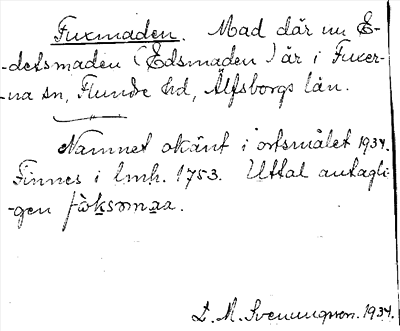 Fuxmaden. Mad där nu E-
-detsmaden (Edsmaden) är i Fuxer-
-na sn, Flundre hd, Älfsborgs län.
Namnet okänt i ortsmålet 1934.
Finnes i lmh. 1753. Uttal antagli-
-gen
L. M. Svenungsson. 1934.